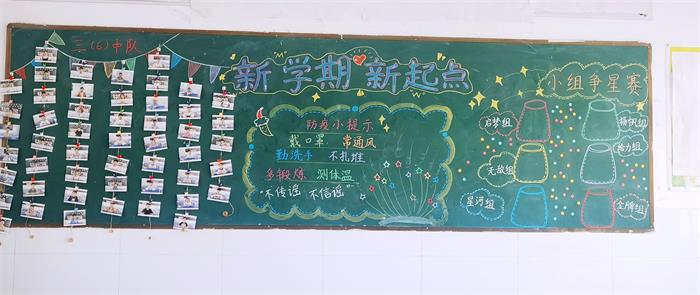 三(6)中队
新学期 新起点
防疫小提示
戴口罩 常通风
勤洗手 不扎堆
多锻炼 测体温
"不传谣 不信谣"
小组争星赛
启梦组
无敌组
给力组
星河组
金牌组